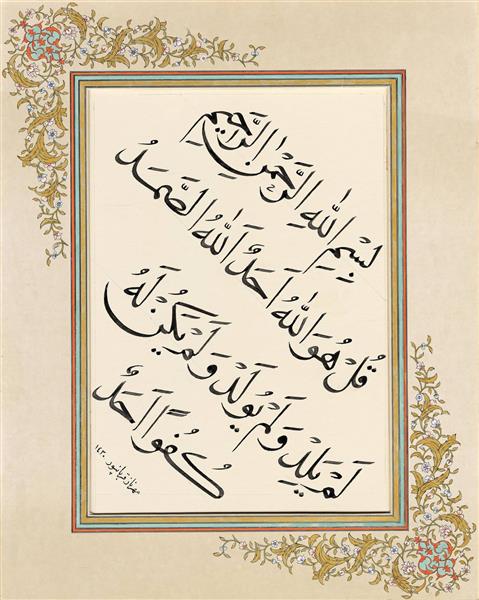 بِسْمِ اللهِ الرَّحْمٰنِ الرَّحِيمِ
قُلْ هُوَ اللهُ اَحَدٌ اَللهُ الصَّمَدُ
لَمْ يَلِدْ وَلَمْ يُولَدْ وَلَمْ يَكُنْ لَهُ
كُفُوًا اَحَدٌ
مهناز قربانپور ١٤٣٠